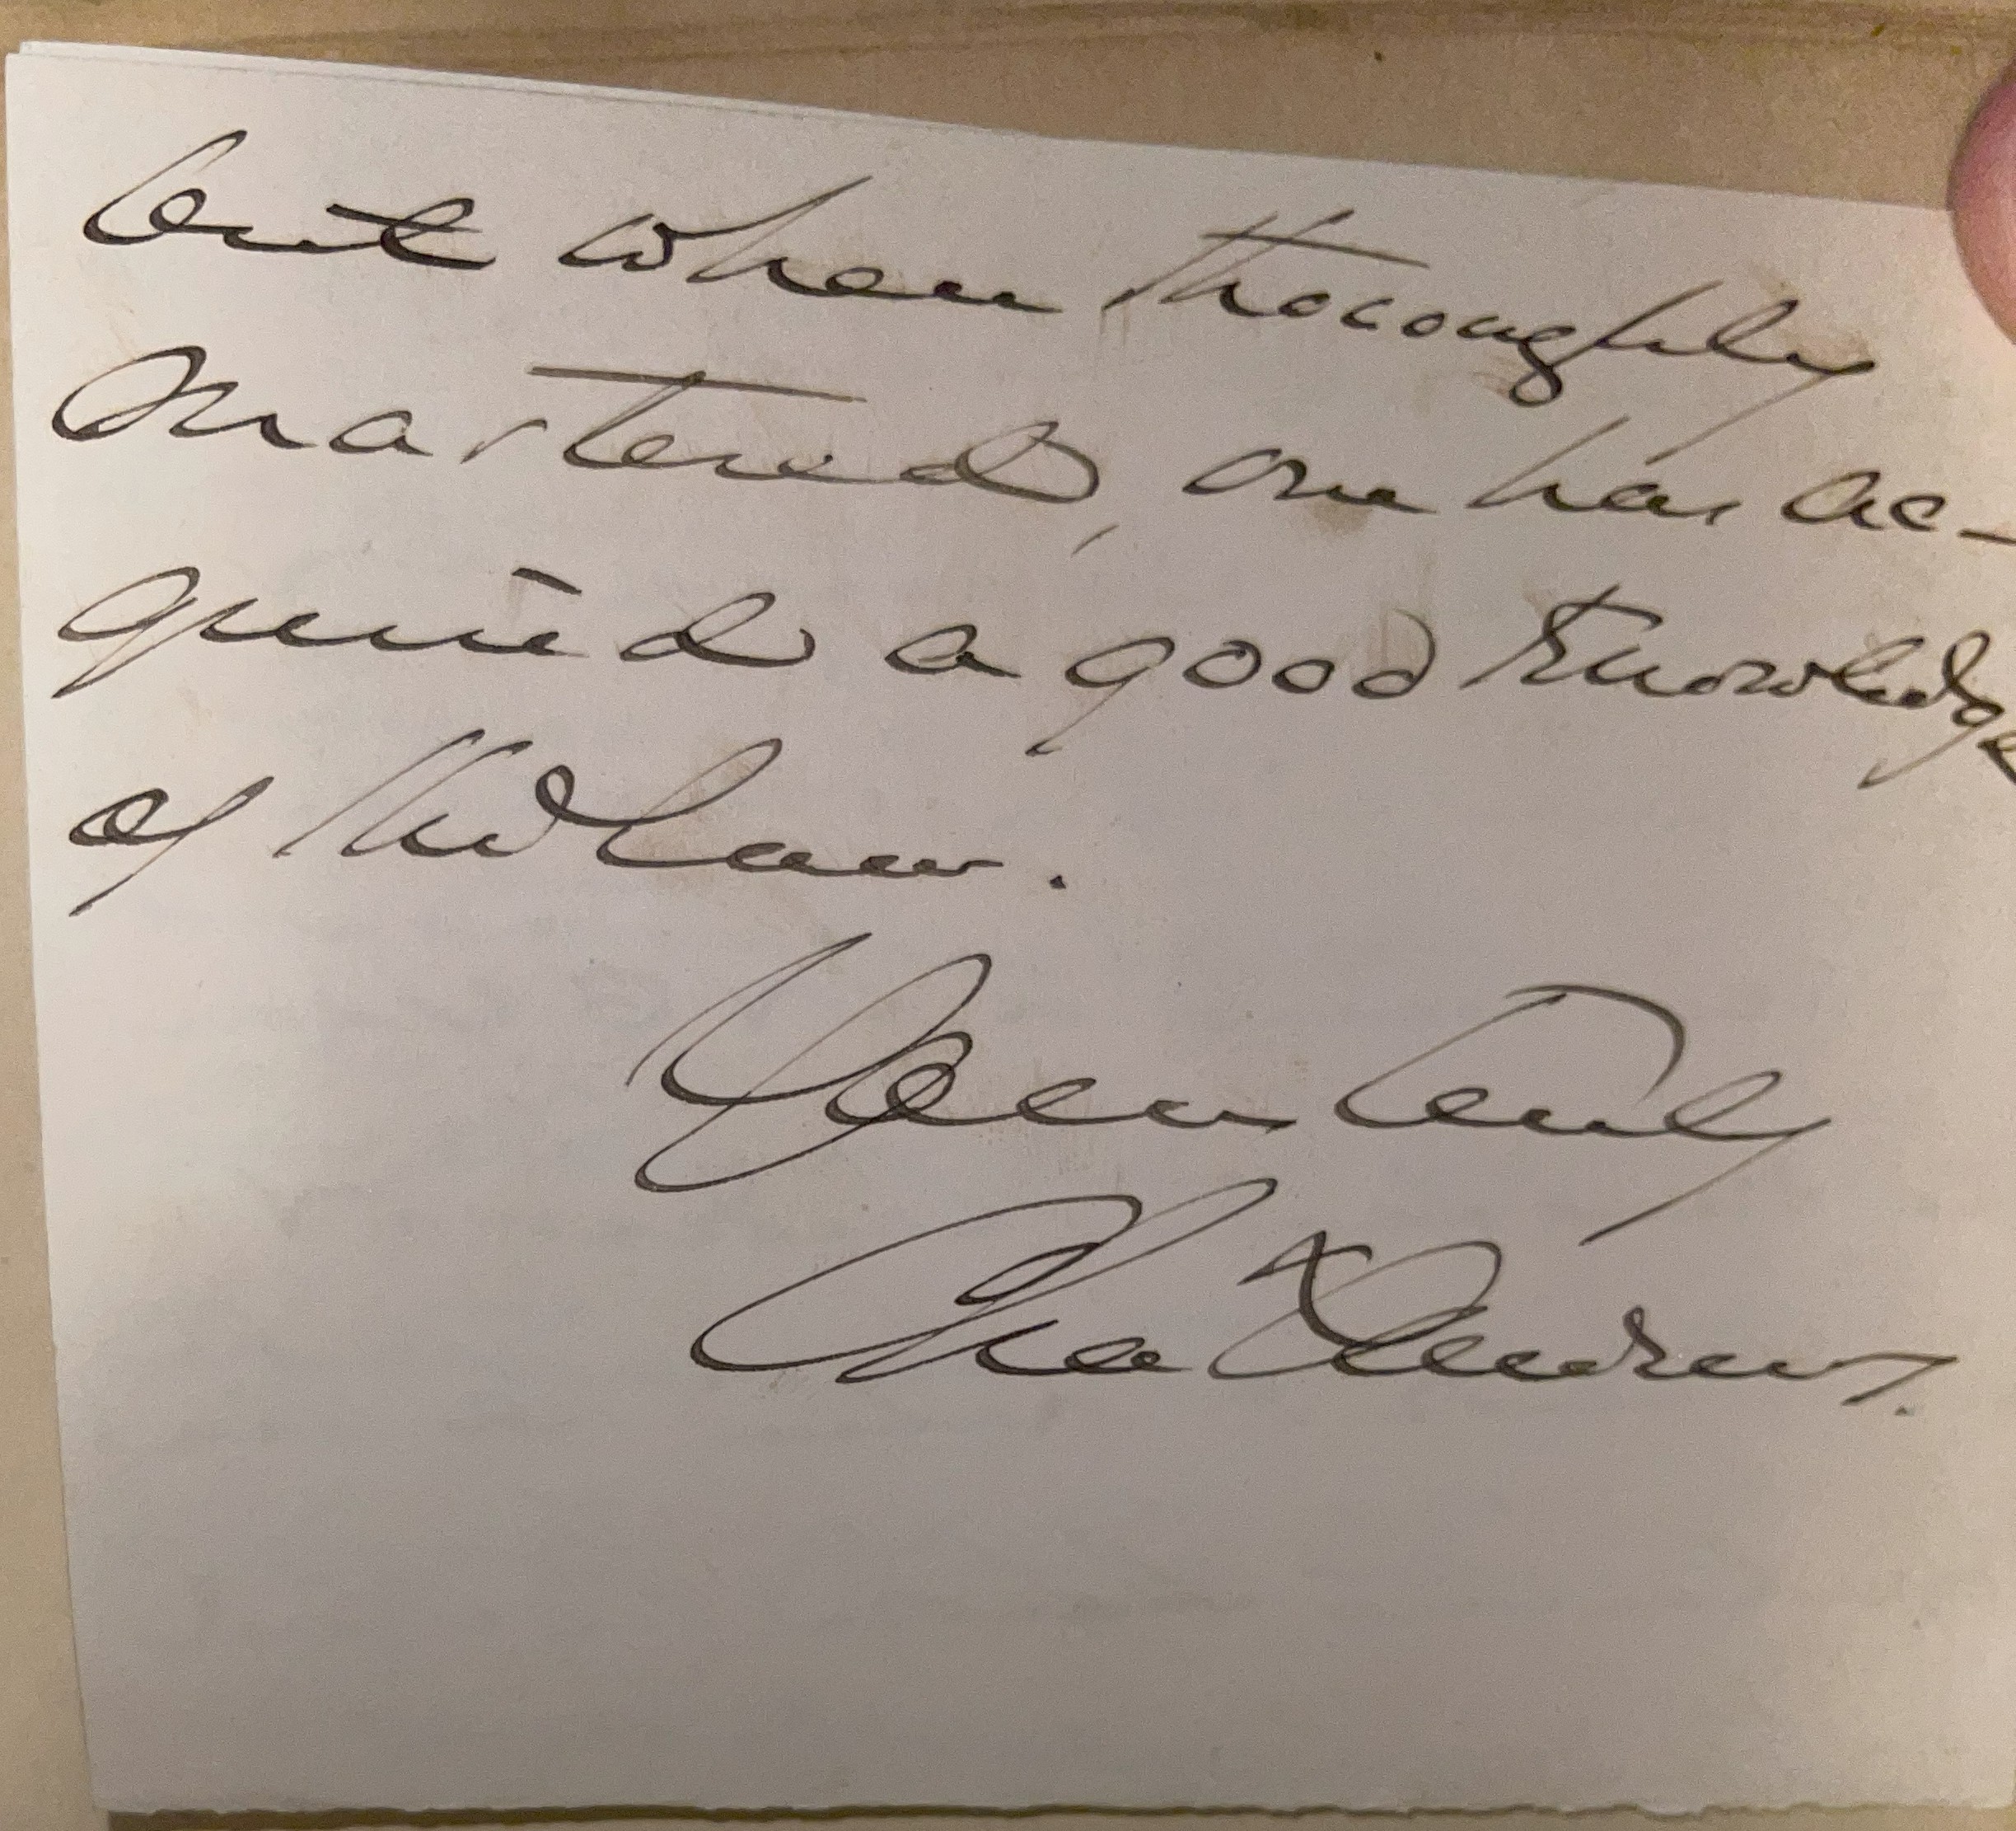 but when thoroughly
mastered, one has ac-
quired a good knowledge
of the law.
Yours truly
Chas Andrews.